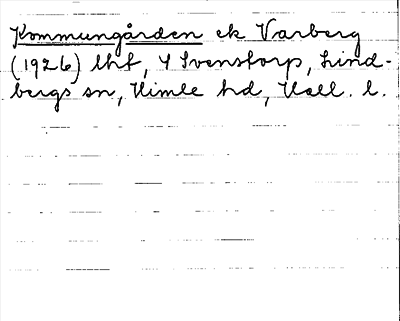 Kommungården ek Varberg
(1926) lhf, 4 Svenstorp, Lind-
bergs sn, Himle hd, Hall. l.